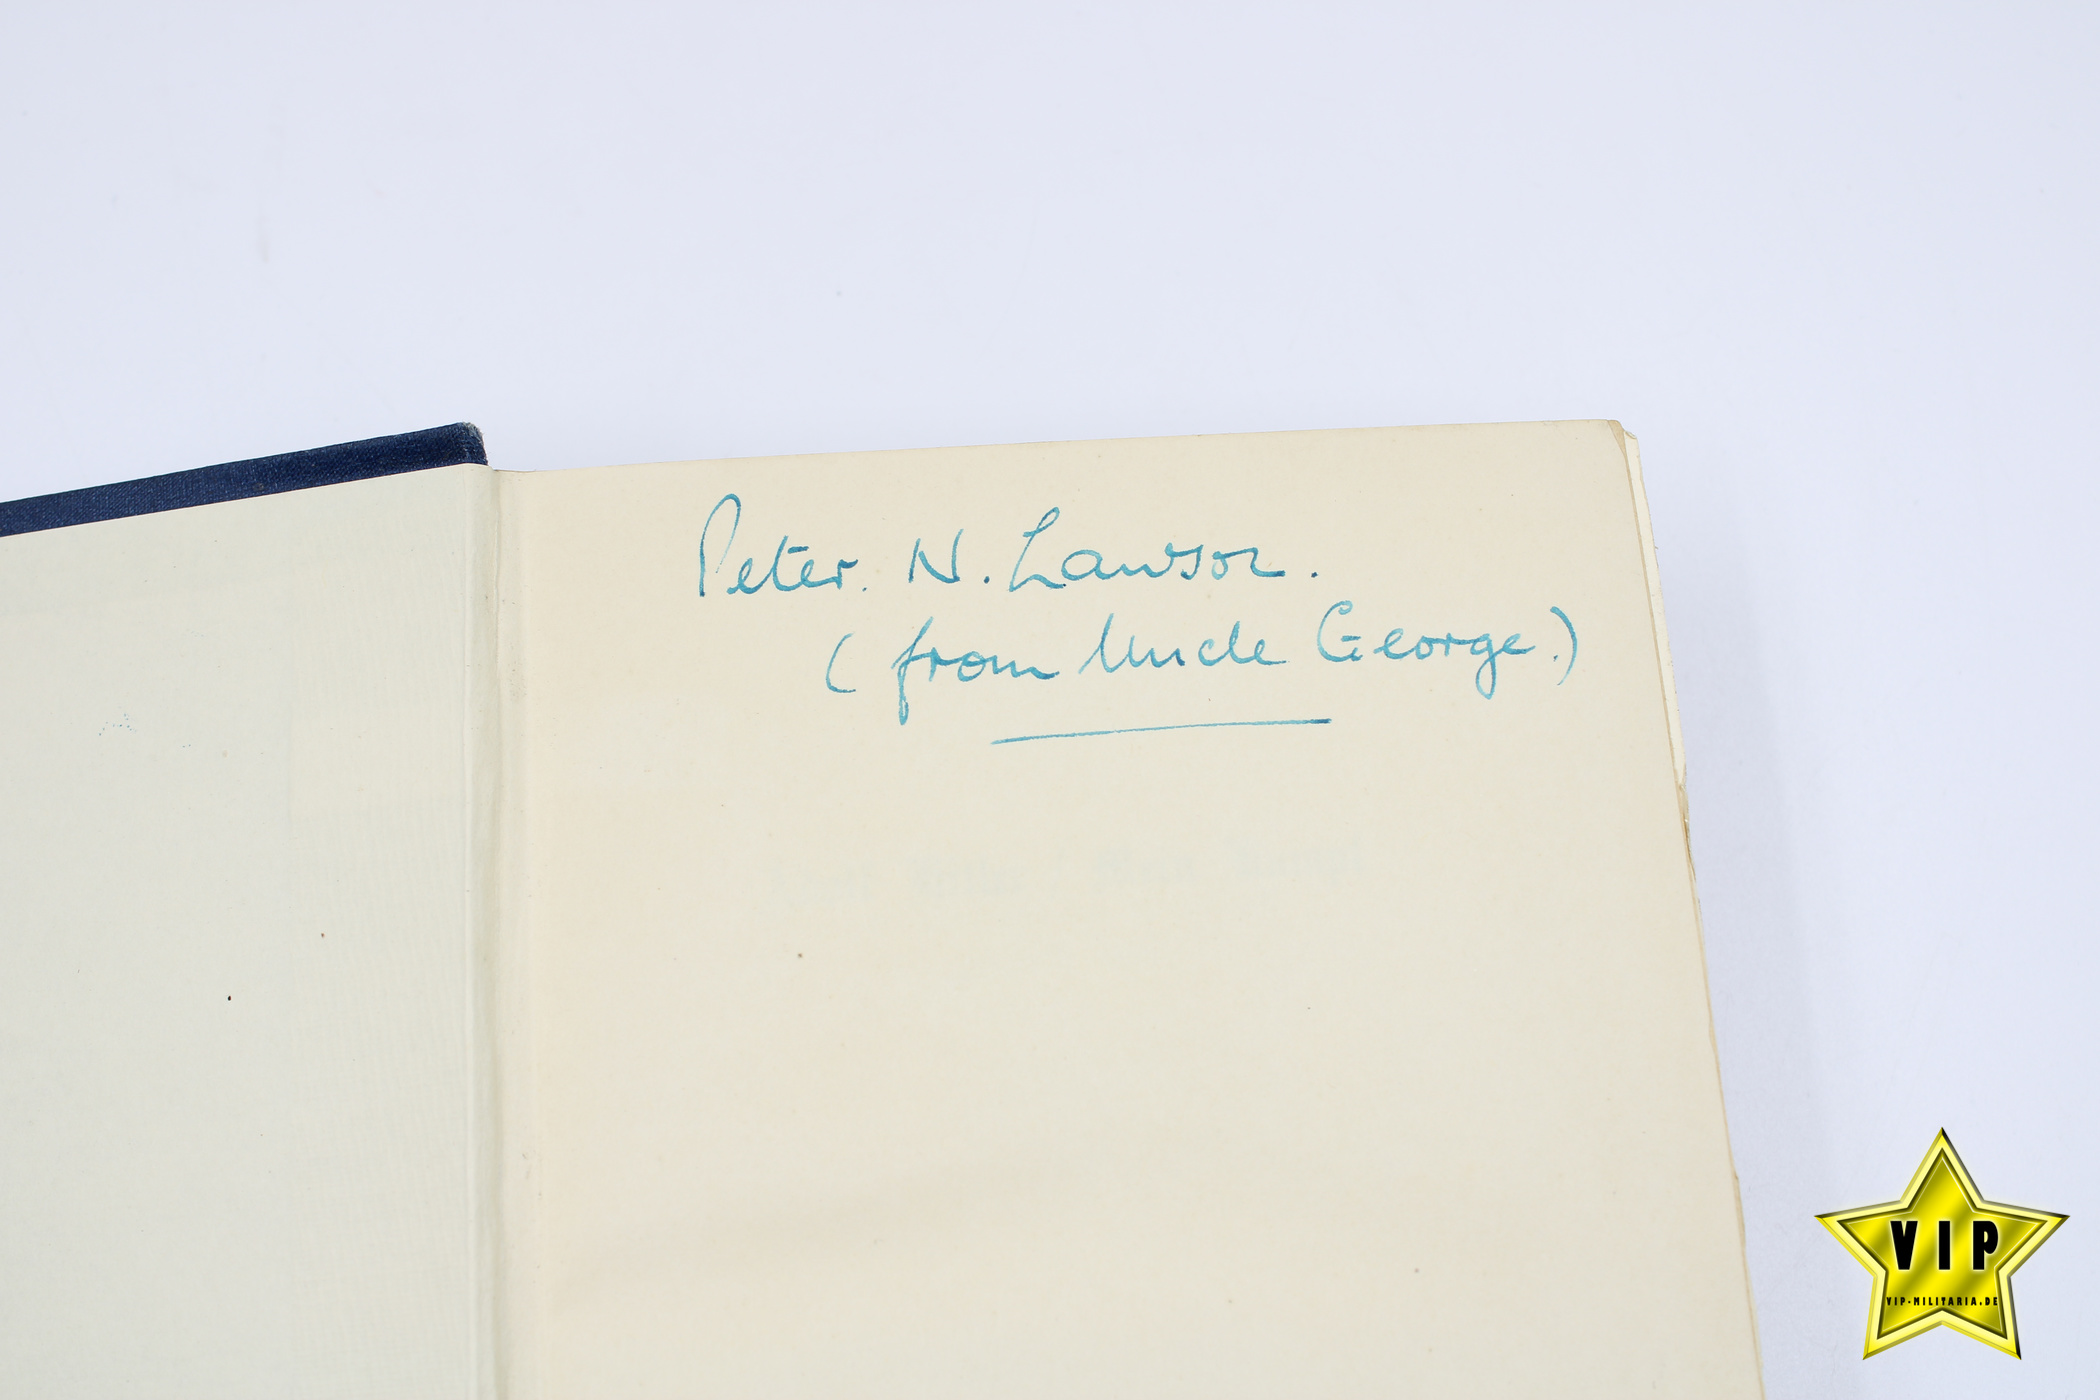 Peter. N. Lawson.
(from Uncle George.)
VIP
VIP-MILITARIA.DE